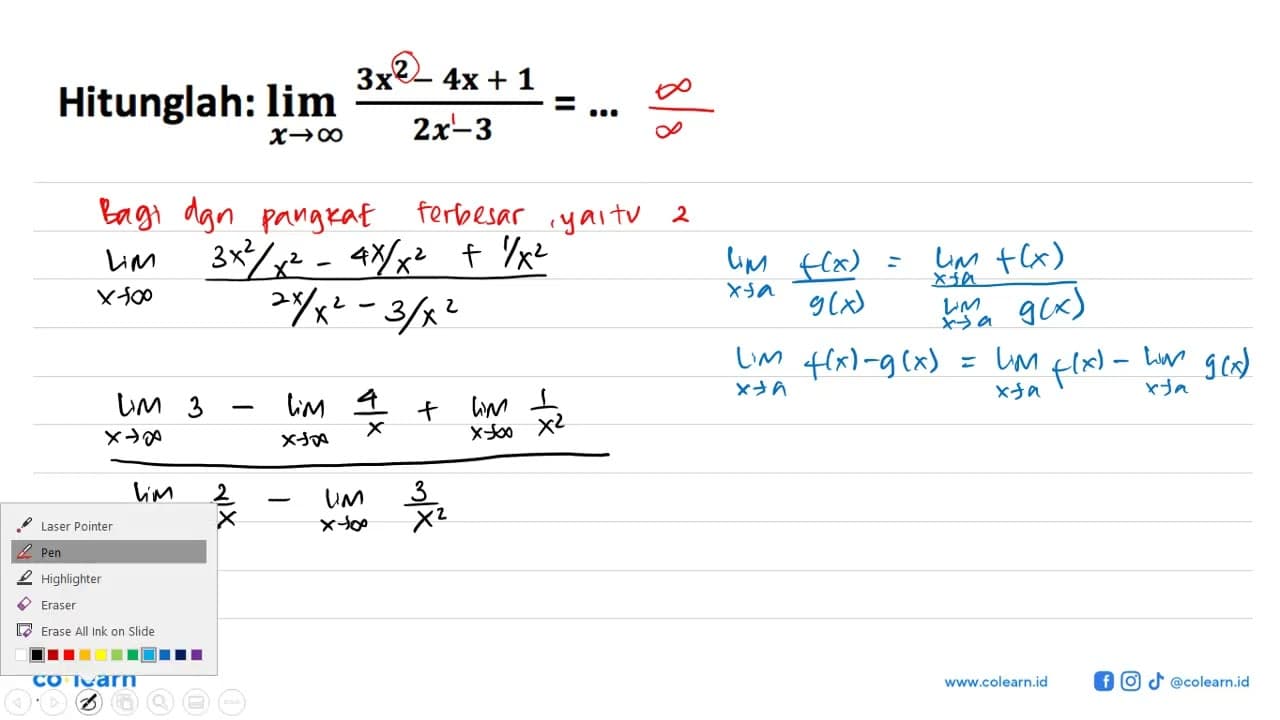 Hitunglah: lim x→∞ (3x² – 4x + 1)/(2x¹–3) = ... ∞/∞
Bagi dgn pangkat terbesar, yaitu 2
lim x→∞ (3x²/x² – 4x/x² + 1/x²)/(2x/x² – 3/x²)
lim x→a f(x)/g(x) = lim x→a f(x) / lim x→a g(x)
lim x→a f(x) – g(x) = lim x→a f(x) – lim x→a g(x)
lim x→∞ 3 – lim x→∞ 4/x + lim x→∞ 1/x²
lim 2/x – lim x→∞ 3/x²
Laser Pointer
Pen
Highlighter
Eraser
Erase All Ink on Slide
co learn
www.colearn.id
@colearn.id